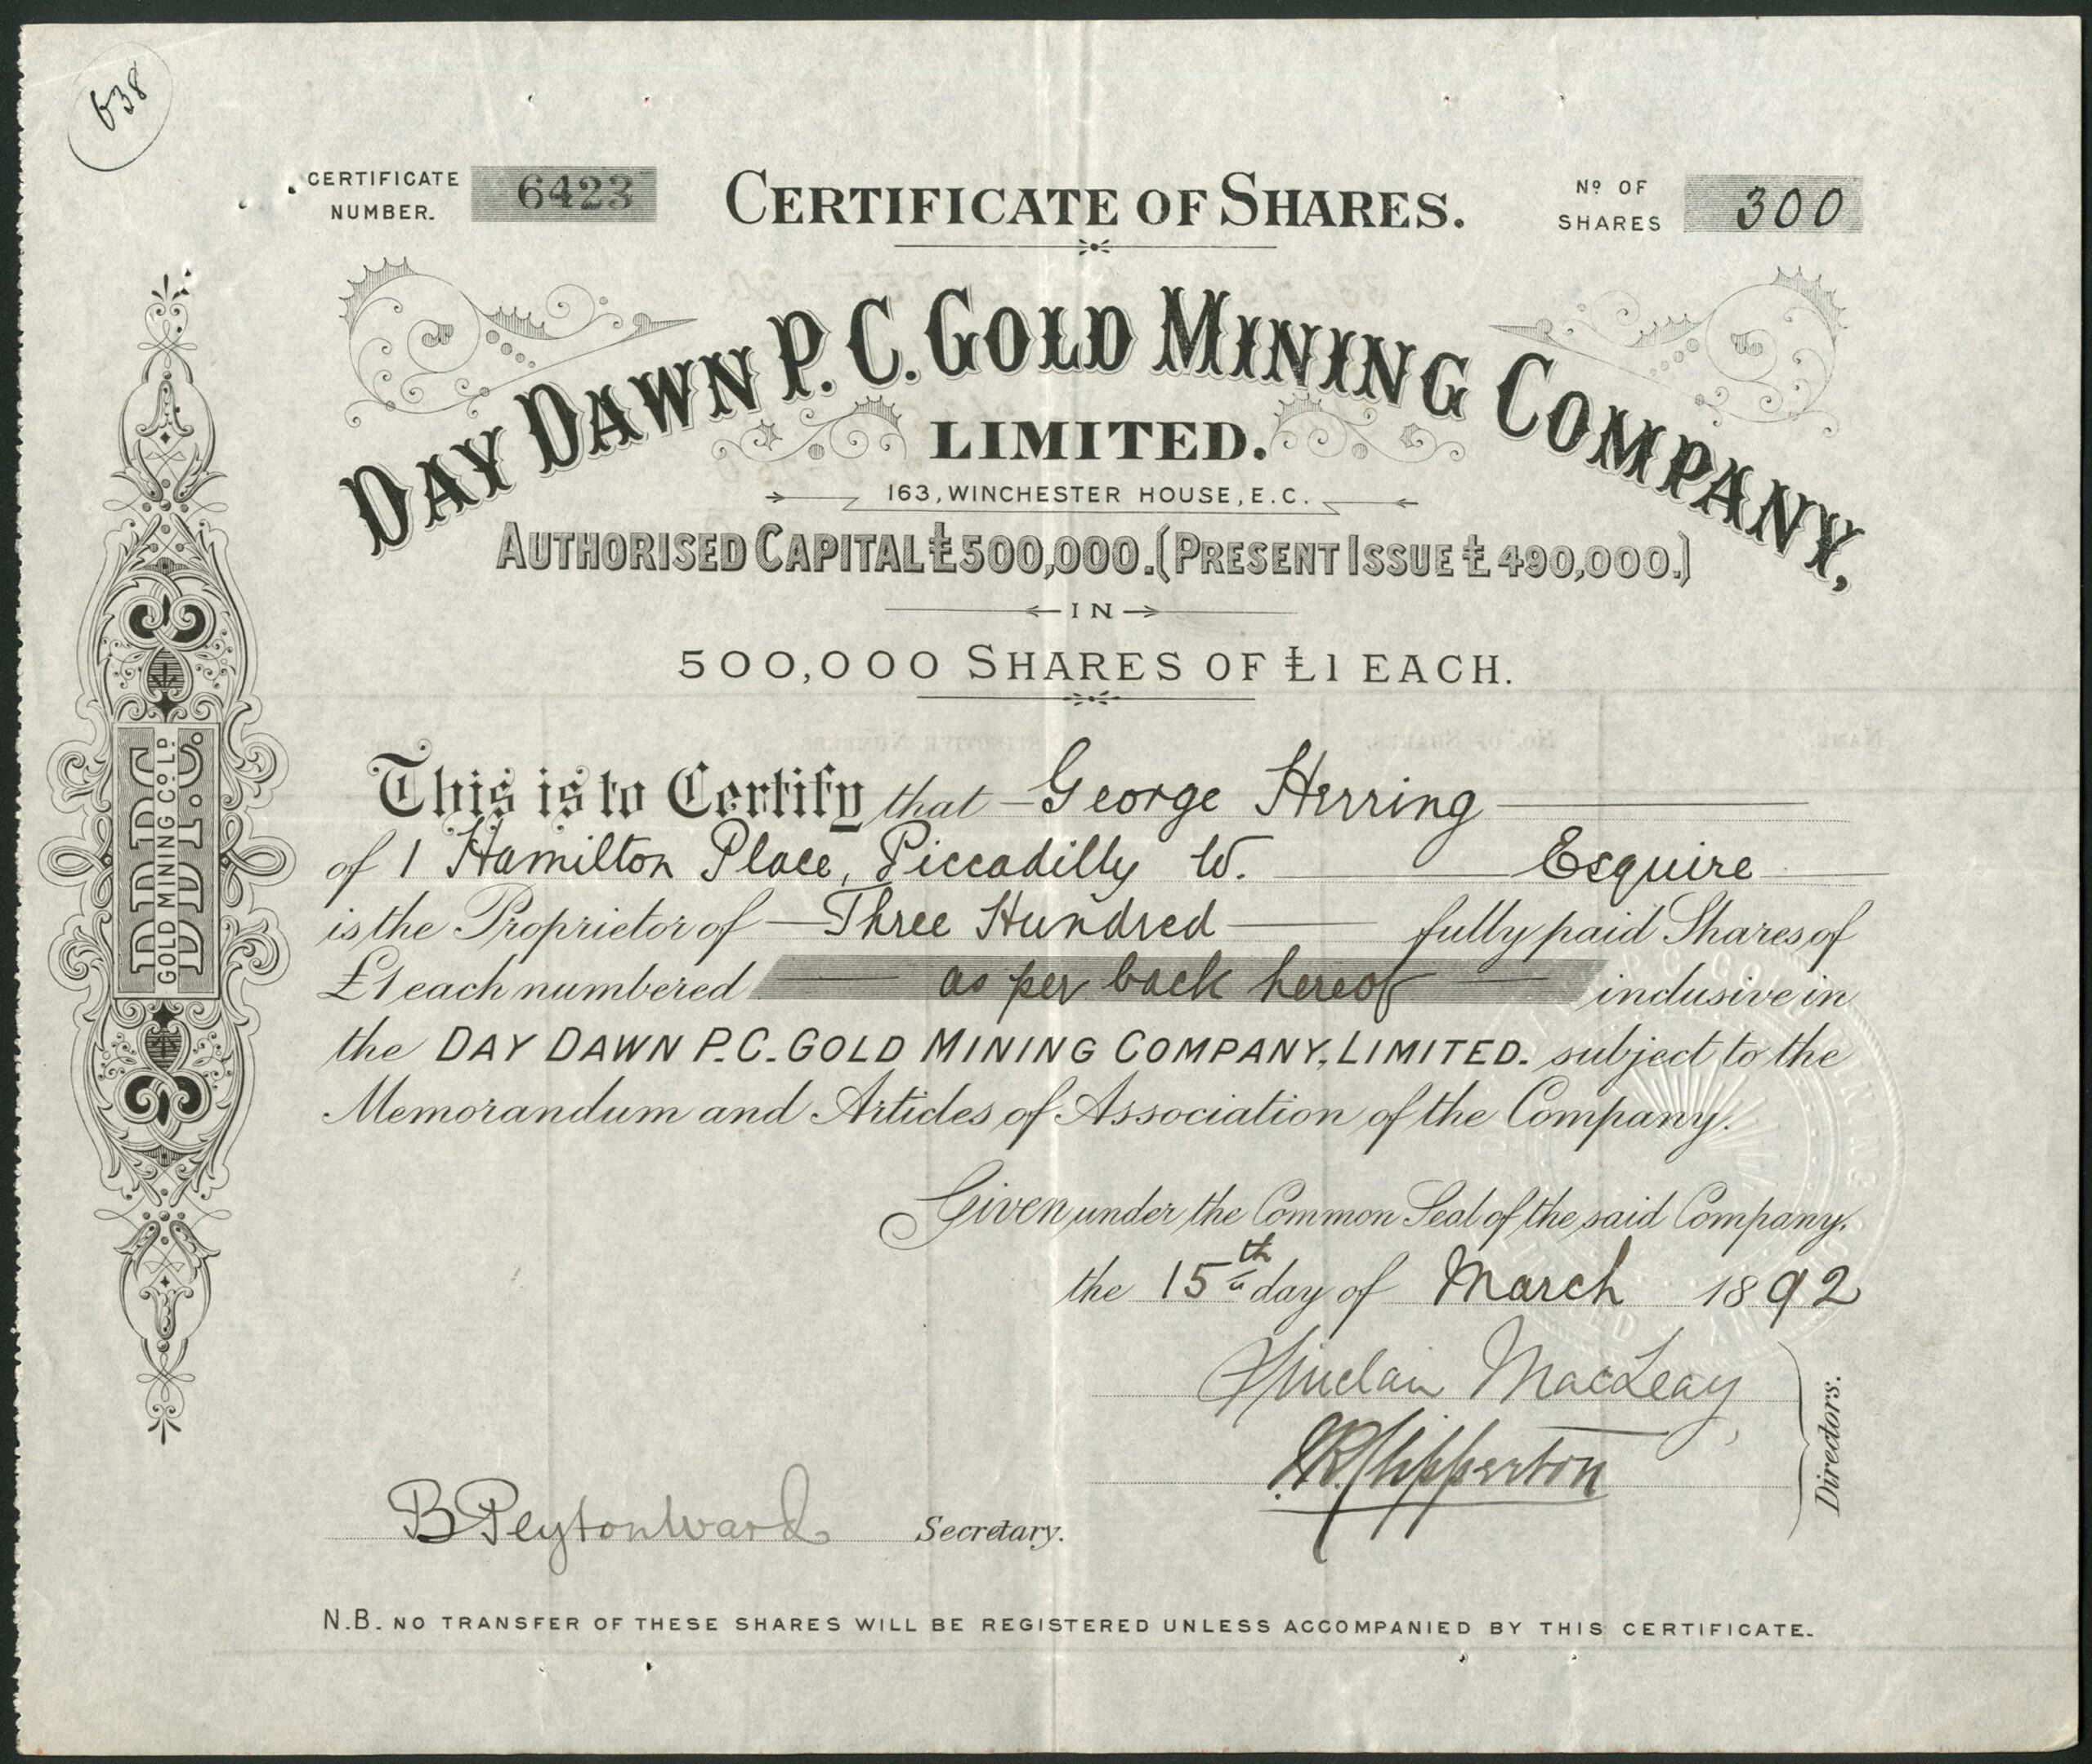 638
CERTIFICATE NUMBER. 6423
CERTIFICATE OF SHARES.
Nº OF SHARES 300
DAY DAWN P. C. GOLD MINING COMPANY,
LIMITED.
163, WINCHESTER HOUSE, E.C.
AUTHORISED CAPITAL £500,000. (PRESENT ISSUE £490,000.)
IN
500,000 SHARES OF £1 EACH.
This is to Certify that George Herring
of 1 Hamilton Place, Piccadilly W. Esquire
is the Proprietor of Three Hundred fully paid Shares of
£1 each numbered as per back hereof inclusive in
the DAY DAWN P.C. GOLD MINING COMPANY, LIMITED. subject to the
Memorandum and Articles of Association of the Company.
Given under the Common Seal of the said Company.
the 15th day of March 1892
Sinclair MacLeay
Chipperton
Directors.
B Peyton Ward Secretary.
N.B. NO TRANSFER OF THESE SHARES WILL BE REGISTERED UNLESS ACCOMPANIED BY THIS CERTIFICATE.
D D P. C.
GOLD MINING Cº Lᴰ.